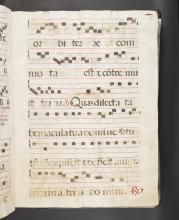 or bi ter re et com
mo ta est et cōtre mu
it ter ra. Quā dilecta ta
bernacula tua domine virtu
tū cōcupiscit et deficit anima
in atria domini.